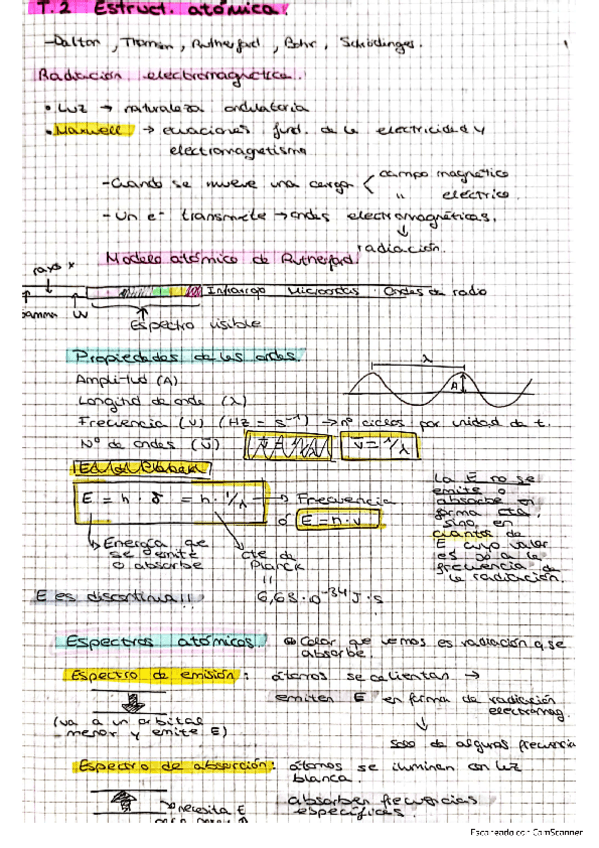 T.2 Estruct. atómica.
- Dalton, Thomson, Rutherford, Bohr, Schrödinger.
Radiación electromagnética.
• Luz → naturaleza ondulatoria
• Maxwell → ecuaciones fund. de la electricidad y
electromagnetismo
- Cuando se mueve una carga < campo magnético
" eléctrico.
- Un e- transmite → ondas electromagnéticas.
↓
radiación.
Modelo atómico de Rutherford.
rayos x
Infrarrojo Microondas Ondas de radio
gamma UV
Espectro visible
Propiedades de las ondas.
λ
Amplitud (A)
A
Longitud de onda (λ)
Frecuencia (ν) (Hz = s⁻¹) → nº ciclos por unidad de t.
Nº de ondas (ν̄) ν̄ = 1/λ
E = h · γ = h · 1/λ → Frecuencia
ó E = h · ν
Energía que
se emite
o absorbe
cte de
Planck
||
6,63 · 0⁻³⁴ J · s
La E no se
emite o
absorbe en
forma cte.
sino en
cuantos de
E cuyo valor
es a la
frecuencia de
la radiación.
E es discontinua!!
Espectros atómicos.
Color que vemos es radiación q se
absorbe.
Espectro de emisión: átomos se calientan →
emiten E en forma de radiación
electromag.
↓
solo de algunas frecuencia
(va a un orbital
menor y emite E)
Espectro de absorción: átomos se iluminan con luz
blanca.
absorben frecuencias
específicas.
necesita E
Escaneado con CamScanner